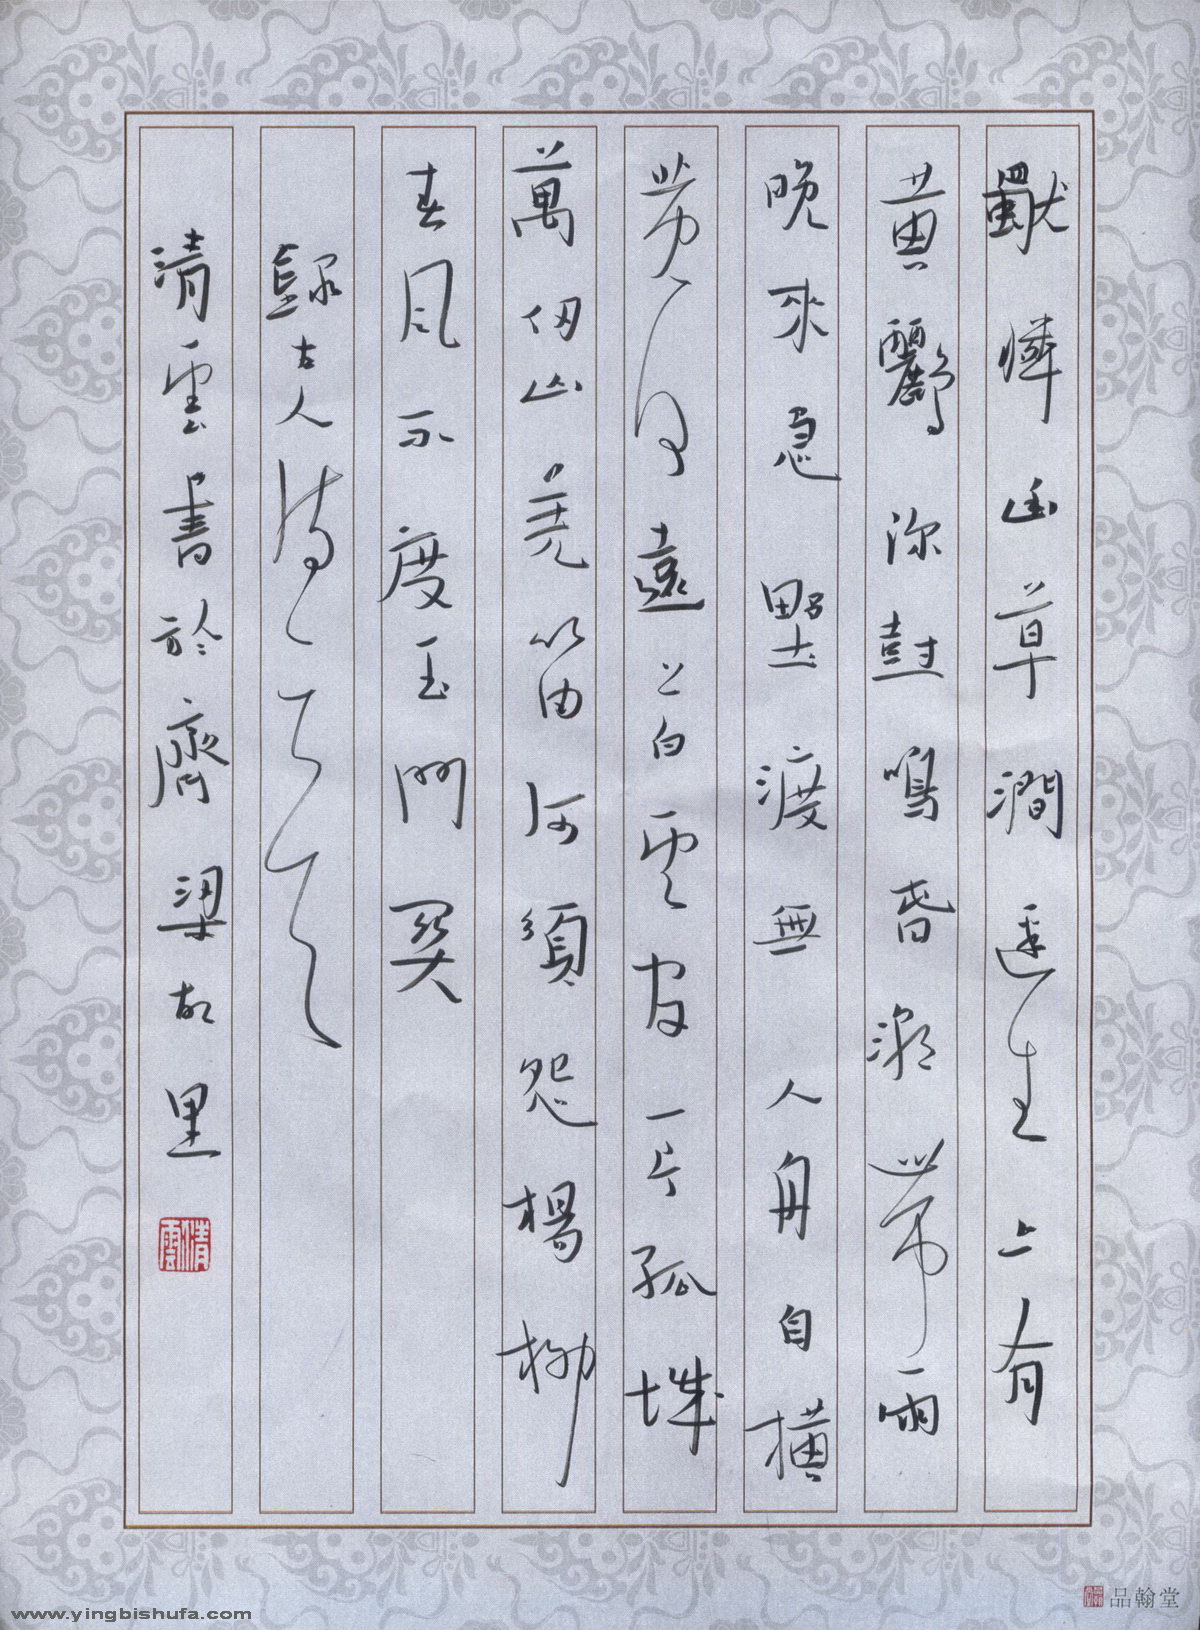 獨憐幽草澗邊生上有
黄鸝深樹鳴春潮帶雨
晚來急野渡無人舟自横
黄河遠上白雲间一片孤城
萬仞山羌笛何須怨楊柳
春風不度玉門関
録古人詩
清雲書於齊梁故里
清雲
品翰堂
www.yingbishufa.com